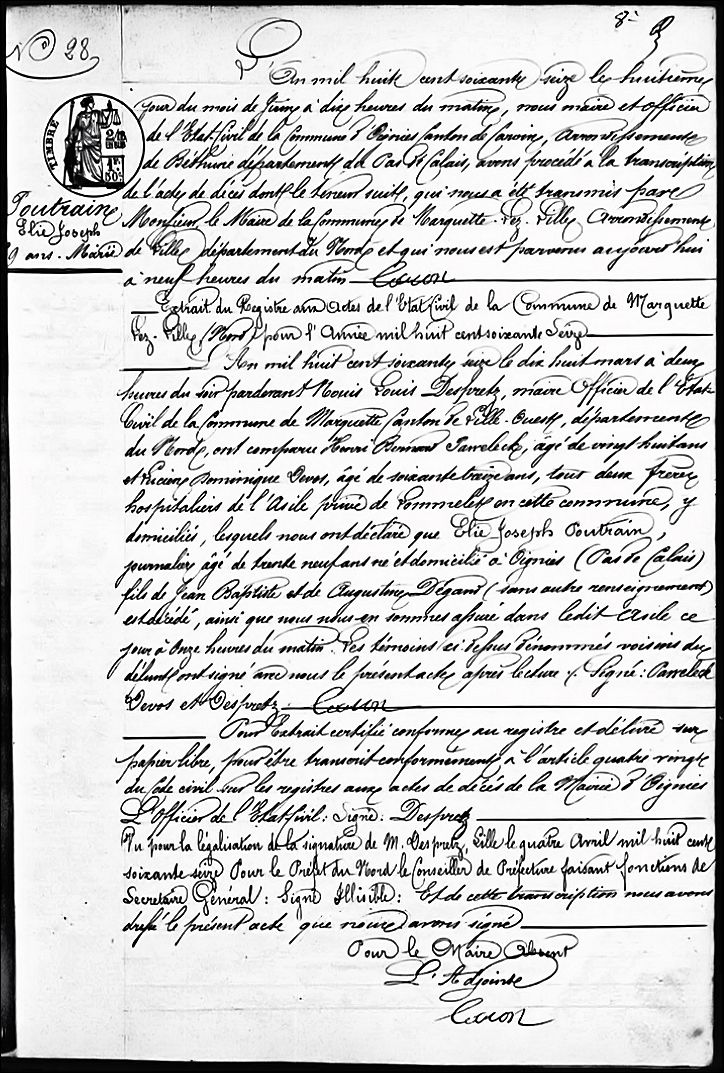 8e
N° 28
L'An mil huit cent soixante seize le huitième
jour du mois de Juin à dix heures du matin, nous maire et officier
de l'Etat-Civil de la Commune d'Oignies Canton de Carvin, Arrondissement
de Béthune département du Pas de Calais, avons procédé à la transcription
de l'acte de décès dont la teneur suit, qui nous a été transmis par
Monsieur le Maire de la Commune de Marquette-Lez-Lille Arrondissement
de Lille, département du Nord et qui nous est parvenu aujourd'hui
à neuf heures du matin
TIMBRE
Poutrain
Elie Joseph
9 ans. Marié
Extrait du Registre aux Actes de l'Etat Civil de la Commune de Marquette
Lez-Lille (Nord) pour l'Année mil huit cent soixante Seize
An mil huit cent soixante seize le dix huit mars à deux
heures du soir pardevant Nous Louis Despretz, maire Officier de l'Etat-
Civil de la Commune de Marquette Canton de Lille-Ouest, département
du Nord, ont comparu Henri Bernard Paweleck, âgé de vingt huit ans
et Lucien Dominique Devos, âgé de soixante treize ans, tous deux frères
hospitaliers de l'Asile privé de Lommelet en cette commune, y
domiciliés, lesquels nous ont déclaré que Elie Joseph Poutrain,
journalier âgé de trente neuf ans né et domicilié à Oignies (Pas de Calais)
fils de Jean Baptiste et de Augustine Dégand (sans autre renseignement)
est décédé, ainsi que nous nous en sommes assuré dans ledit Asile ce
jour à Onze heures du matin. Les témoins ci-dessus dénommés voisins du
défunt ont signé avec nous le présent acte après lecture /. Signé: Paweleck
Devos et Despretz.
Pour Extrait certifié conforme au registre et délivré sur
papier libre, pour être transcrit conformément à l'article quatre vingt
du Code civil sur les registres aux actes de décès de la Mairie d'Oignies
L'Officier de l'Etat Civil: Signé: Despretz
Vu pour la légalisation de la signature de M. Despretz, Lille le quatre Avril mil huit cent
soixante seize Pour le Préfet du Nord le Conseiller de Préfecture faisant fonctions de
Secretaire Général: Signé Illisible: Et de cette transcription nous avons
dressé le présent acte que nous avons signé
Pour le Maire Absent
L'Adjoint